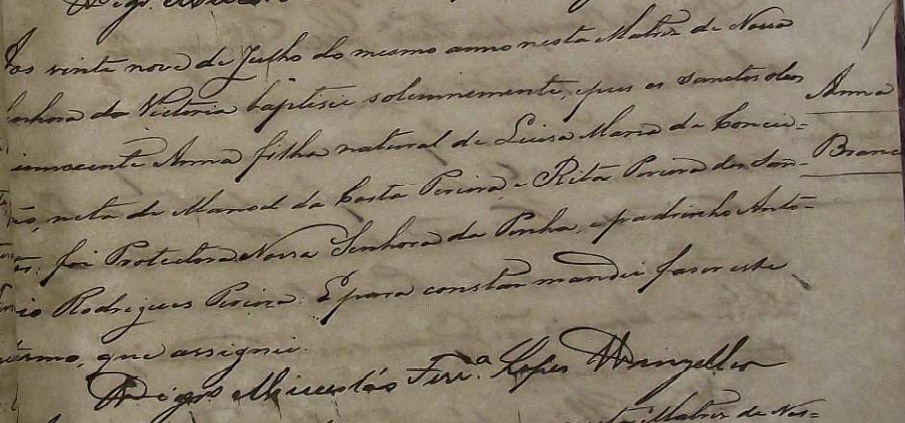 Aos vinte nove de Julho do mesmo anno nesta Matriz de Nossa
Senhora da Victoria baptisei solemnemente, e puz os Sanctos oleos
innocente Anna filha natural de Luisa Maria da Concei=
ção, neta de Manoel da Costa Pereira, e Rita Pereira dos San-
foi Protectora Nossa Senhora da Penha, e padrinho Antô-
nio Rodrigues Pereira. E para constar mandei faser este
que assignei.
Vigrº Ferrª Lopes
Matriz de Nos=
Anna
Branc